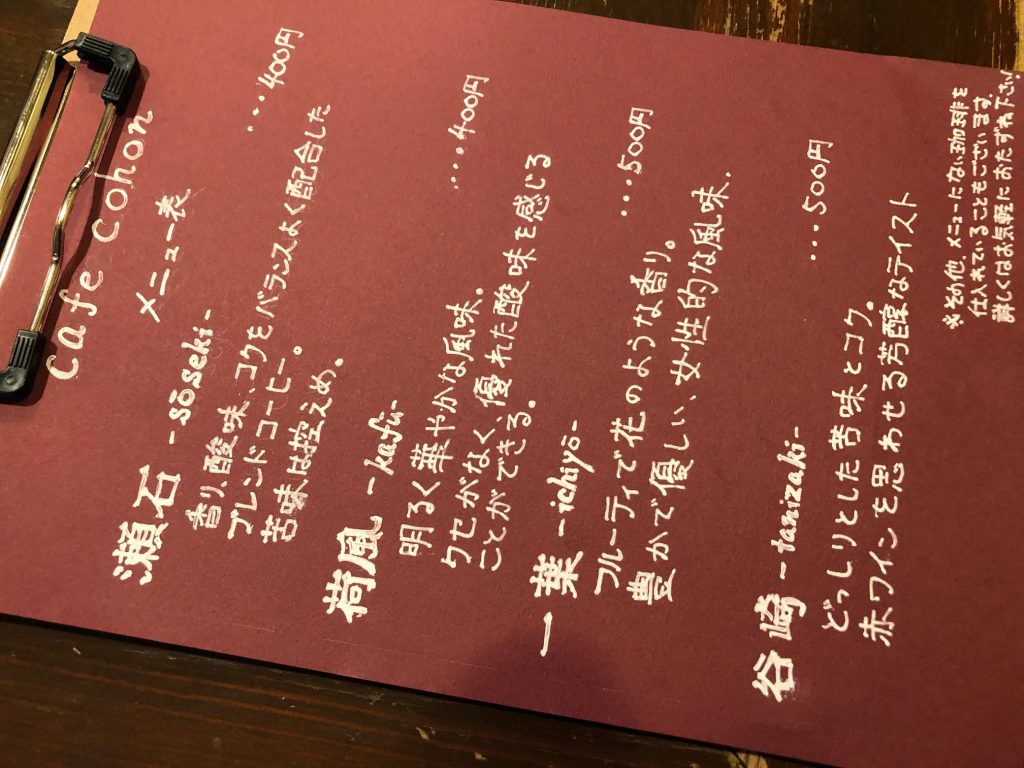 cafe cohon
メニュー表
瀬石 -sōseki- …400円
香り、酸味、コクをバランスよく配合した
ブレンドコーヒー。
苦味は控えめ。
荷風 -kafū- …400円
明るく華やかな風味。
クセがなく、優れた酸味を感じる
ことができる。
一葉 -ichiyō- …500円
フルーティで花のような香り。
豊かで優しい、女性的な風味.
谷崎 -tanizaki- …500円
どっしりとした苦味とコク。
赤ワインを思わせる芳醇なテイスト
※その他、メニューにない珈琲を
仕入れていることもございます。
詳しくはお気軽におたずね下さい!